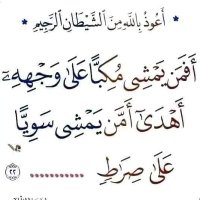 * أَعُوذُ بِاللَّهِ مِنَ الشَّيْطَانِ الرَّجِيمِ *
أَفَمَن يَمْشِى مُكِبًّا عَلَىٰ وَجْهِهِۦٓ
أَهْدَىٰٓ أَمَّن يَمْشِى سَوِيًّا
عَلَىٰ صِرَٰطٍ ............ ٢٢